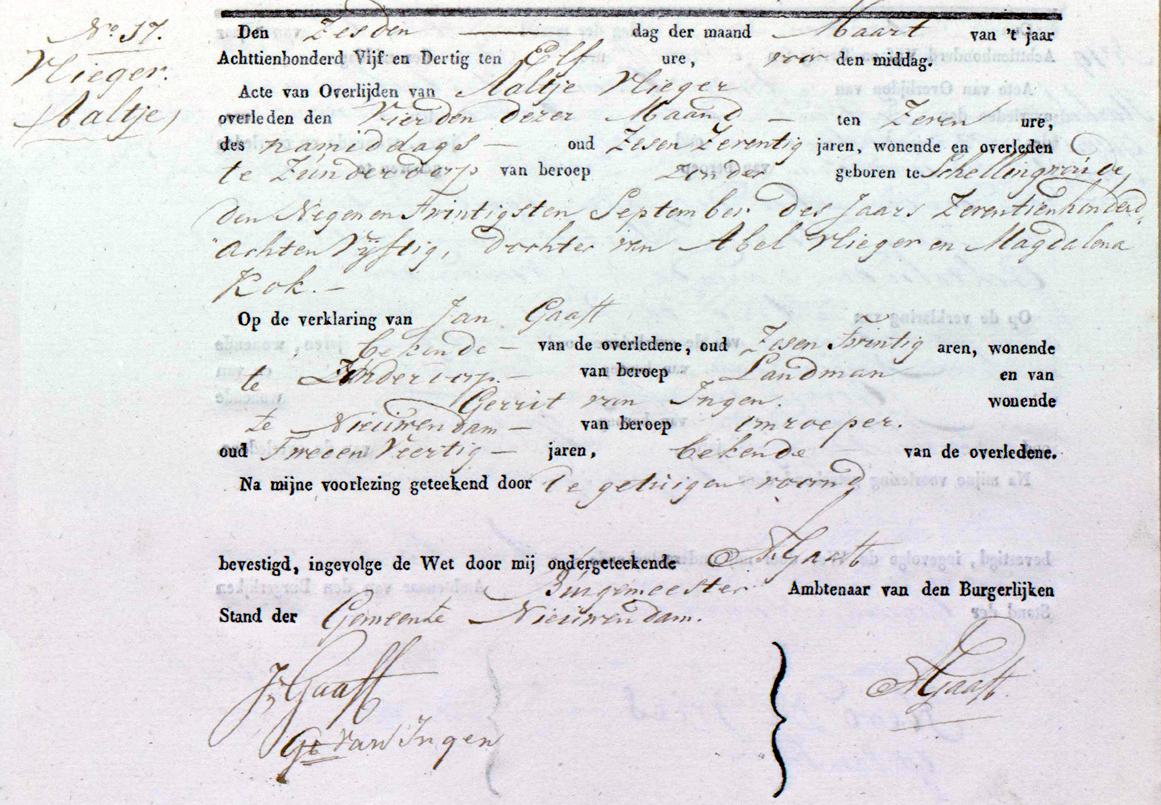 No 17.
Vlieger.
Aaltje,
Den Zesden dag der maand Maart van 't jaar
Achttienhonderd Vijf en Dertig ten Elf ure, voor den middag.
Acte van Overlijden van Aaltje Vlieger
overleden den Vierden dezer Maand ten Zeven ure,
des namiddags oud Zesen Zeventig jaren, wonende en overleden
te Zunderdorp van beroep Zonder geboren te Schellingwoude,
den Negen en Twintigsten September des Jaars Zeventienhonderd
Achten Vijftig, Dochter van Abel Vlieger en Magdalena
Kok.
Op de verklaring van Jan Gaaff
bekende van de overledene, oud Zesen Twintig aren, wonende
te Zunderdorp. van beroep Landman en van
Gerrit van Ingen. wonende
te Nieuwendam van beroep omroeper.
oud Tweeen Veertig jaren, bekende van de overledene.
Na mijne voorlezing geteekend door de getuigen
bevestigd, ingevolge de Wet door mij ondergeteekende Gaaff
Burgemeester Ambtenaar van den Burgerlijken
Stand der Gemeente Nieuwendam.
Jn Gaaff Gaaff
Gt van Ingen